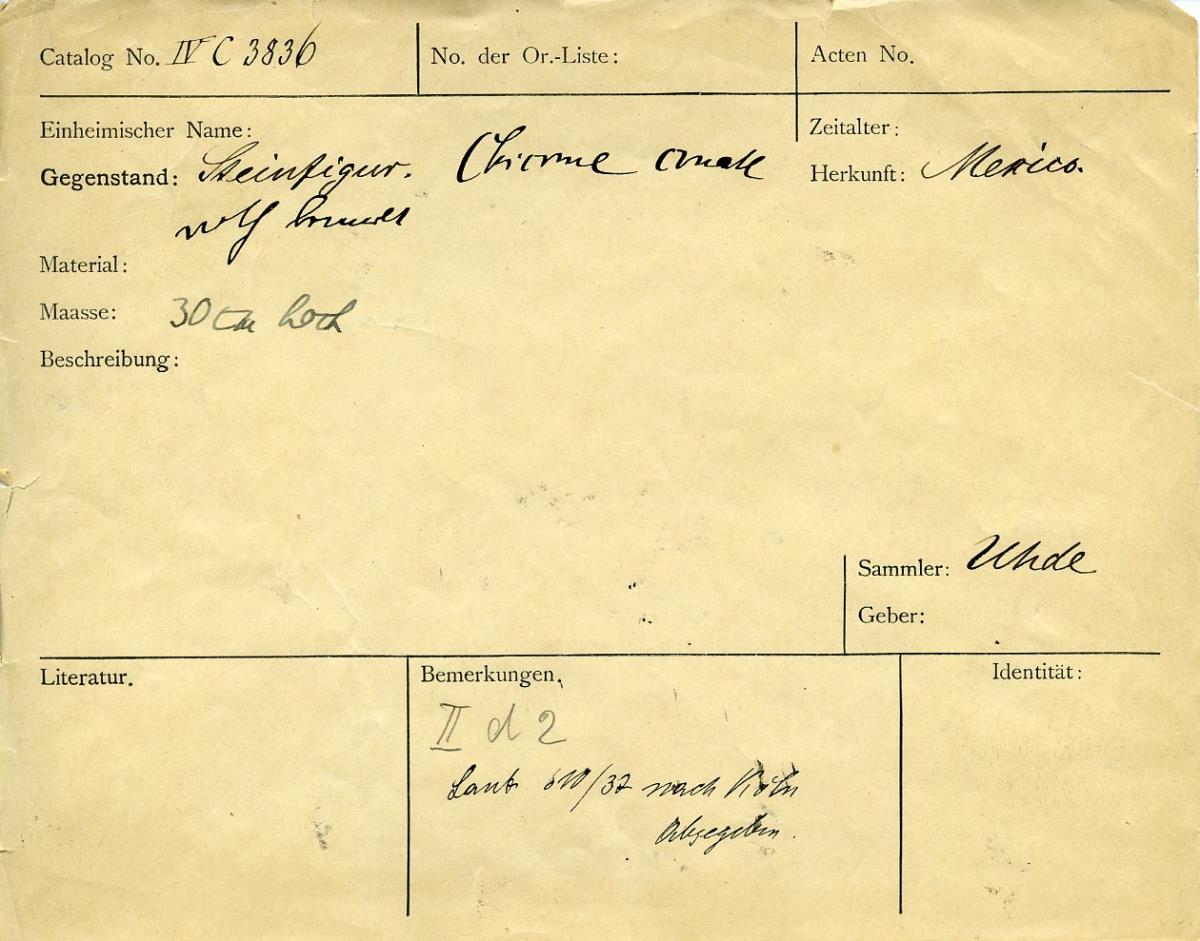 Catalog No. IV C 3836
No. der Or.-Liste:
Acten No.
Einheimischer Name:
Zeitalter:
Gegenstand: Steinfigur.
Herkunft: Mexico.
Material:
Maasse: 30 cm hoch
Beschreibung:
Sammler: Uhde
Geber:
Literatur.
Bemerkungen.
Identität:
II d 2
Laut /37 nach Köln
Abgegeben.